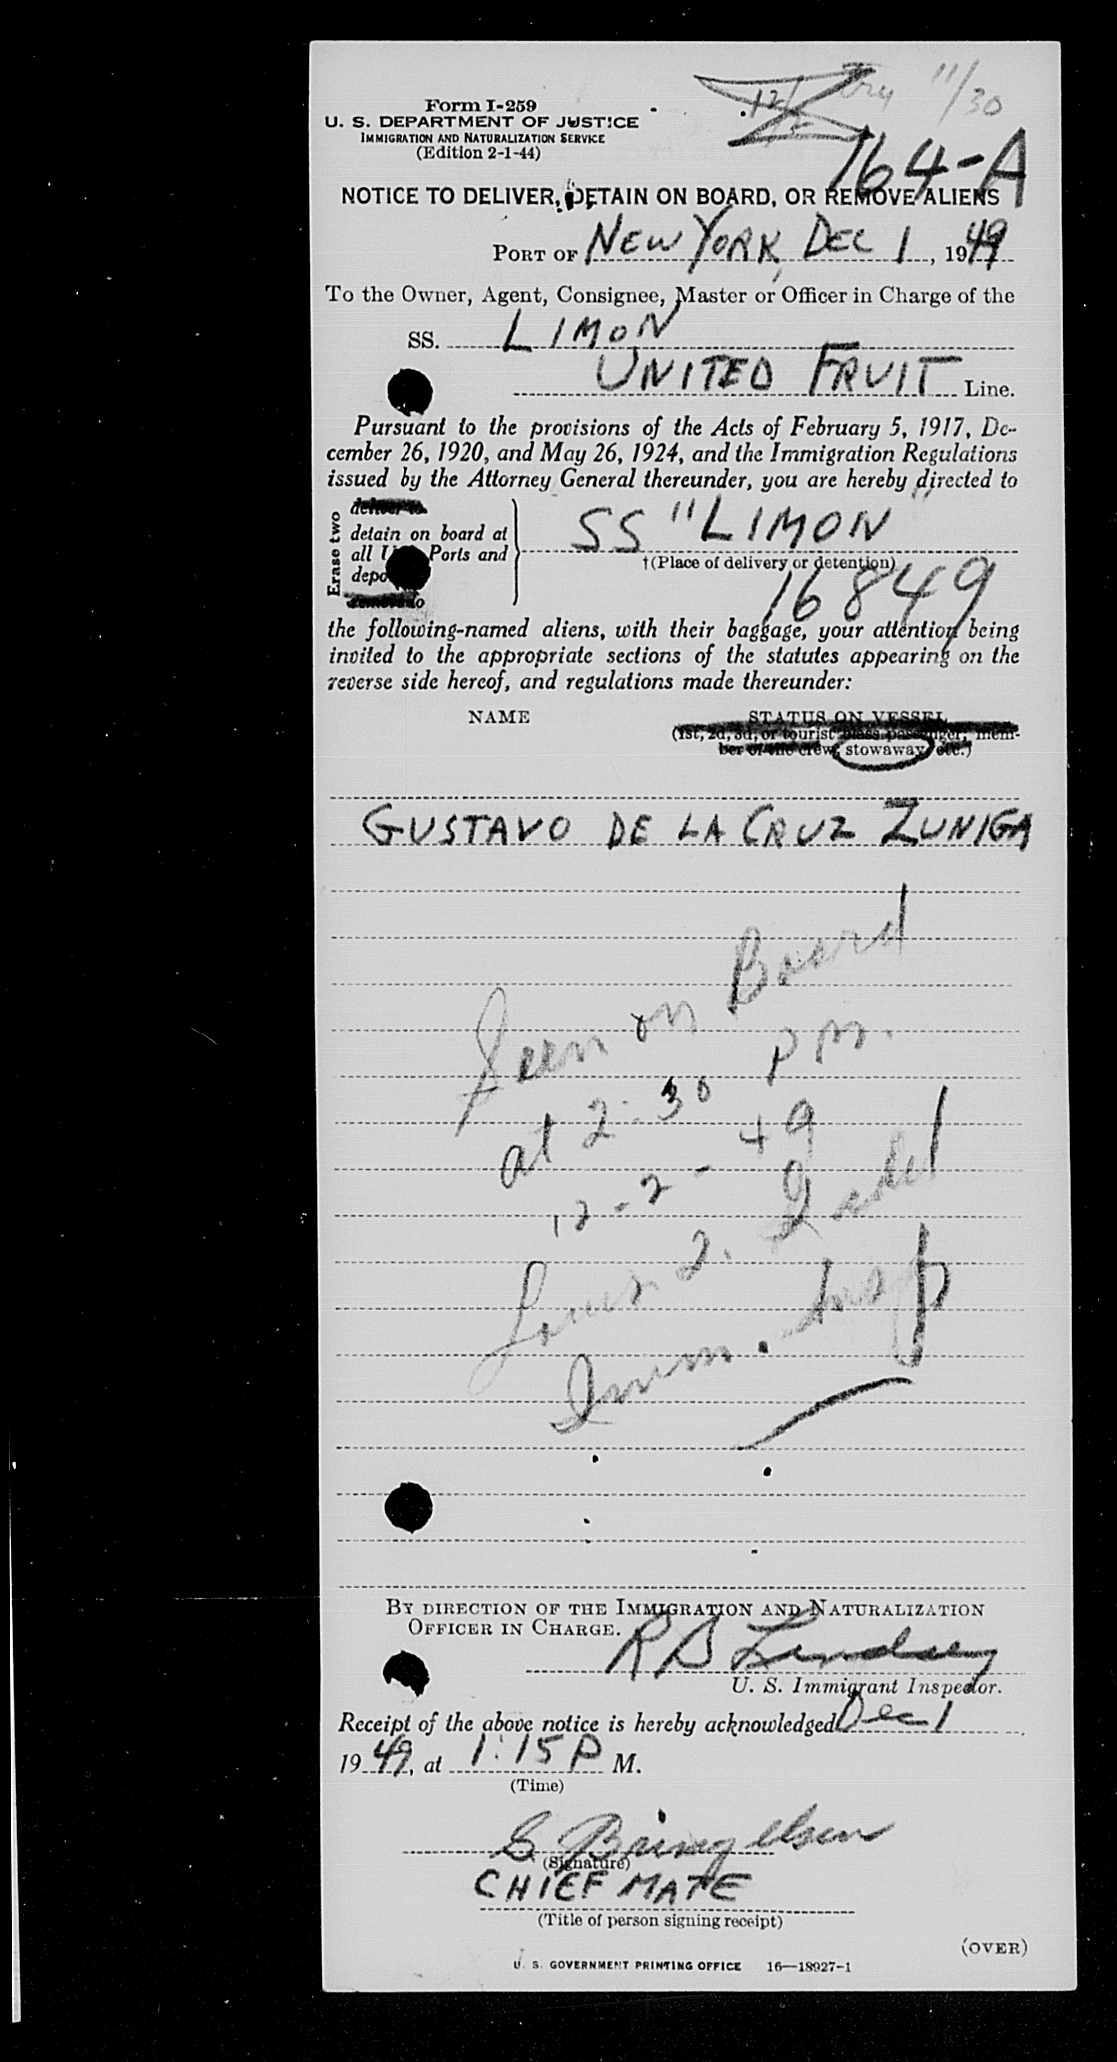 11/30
12/2
Form I-259
U. S. DEPARTMENT OF JUSTICE
IMMIGRATION AND NATURALIZATION SERVICE
(Edition 2-1-44)
164-A
NOTICE TO DELIVER, DETAIN ON BOARD, OR REMOVE ALIENS
PORT OF NEW YORK, DEC 1, 1949
To the Owner, Agent, Consignee, Master or Officer in Charge of the
SS. LIMON
UNITED FRUIT Line.
Pursuant to the provisions of the Acts of February 5, 1917, De-
cember 26, 1920, and May 26, 1924, and the Immigration Regulations
issued by the Attorney General thereunder, you are hereby directed to
Erase two
deliver to
detain on board at
all U. Ports and
depo
SS "LIMON"
†(Place of delivery or detention)
16849
the following-named aliens, with their baggage, your attention being
invited to the appropriate sections of the statutes appearing on the
reverse side hereof, and regulations made thereunder:
NAME STATUS ON VESSEL
(1st, 2d, 3d, or tourist class passenger, mem-
ber of the crew, stowaway, etc.)
GUSTAVO DE LA CRUZ ZUNIGA
Seen on Board
at 2:30 P M.
12-2-49
Louis
Imm. Insp
BY DIRECTION OF THE IMMIGRATION AND NATURALIZATION
OFFICER IN CHARGE.
R B Lindsey
U. S. Immigrant Inspector.
Receipt of the above notice is hereby acknowledged Dec 1
1949, at 1:15 P M.
(Time)
(Signature)
CHIEF MATE
(Title of person signing receipt)
(OVER)
U. S. GOVERNMENT PRINTING OFFICE 16—18927-1